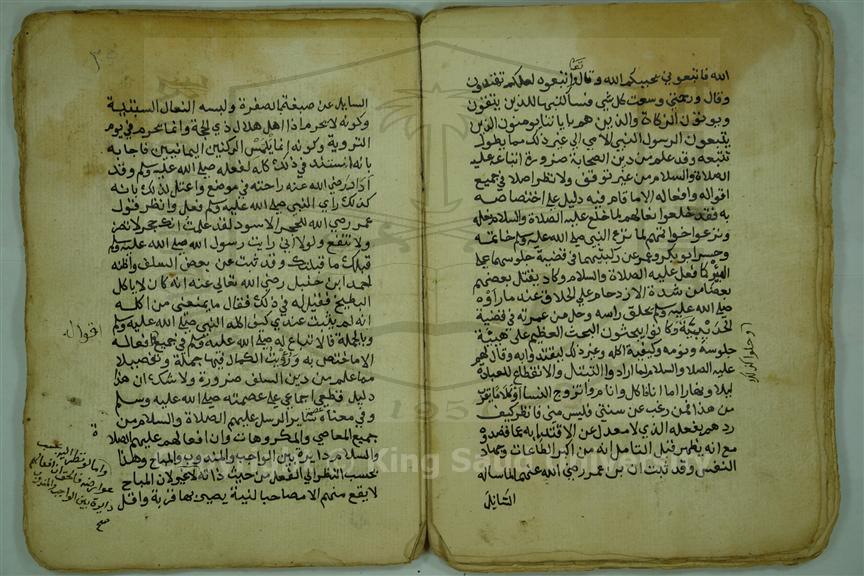 الله فاتبعوني يحببكم الله وقال تعا واتبعوه لعلكم تهتدون
وقال ورحمتي وسعت كل شي فسأكتبها للذين يتقون
ويوتون الزكاة والذين هم باياتنا يومنون الذين
يتبعون الرسول النبي الامي الى غير ذلك مما يطول
تتبعه وقد علم من دين الصحابة ضرورة اتباعه عليه
الصلاة والسلام من غير توقف ولا نظر اصلا في جميع
اقواله وافعاله الا ما قام فيه دليل على اختصاصه
به فقد خلعوا نعالهم لما خلع عليه الصلاة والسلام نعله
ونزعوا خواتمهم لما نزع النبي صلى الله عليه وسلم خاتمه
وحسر ابو بكر وعمر عن ركبتيهما في قضية جلوسهما على
البير كما فعل عليه الصلاة والسلام وكاد يقتل بعضهم
بعضا من شدة الازدحام على الحلاق عند ما راوه
صلى الله عليه وسلم يحلق راسه وحل من عمرته في قضية
الحديبية وكانوا يبحثون البحث العظيم على هيئة
جلوسه ونومه وكيفية اكله وغير ذلك ليقتدوا به وقال لهم
عليه الصلاة والسلام لما ارادوا التبتل والانقطاع للعبادة
ليلا ونهارا اما انا فاكل وانام واتزوج النسا او كلاما يقرب
من هذا فمن رغب عن سنتي فليس مني فانظر كيف
ردهم بفعله الذي لا معدل عن الاقتدا به عما قصدوه
مع انه يظهر قبل التامل انه من اكبر الطاعات وجهاد
النفس وقد ثبت ان ابن عمر رضي الله عنهما لما ساله
السائل
السايل عن صبغه بالصفرة ولبسه النعال السبتية
وكونه لا يحرم اذا اهل هلال ذي الحجة وانما يحرم في يوم
التروية وكونه انما يلمس الركنين اليمانيين فاجابه
بانه استند في ذلك كله لفعله صلى الله عليه وسلم وقد
ادار رضي الله عنه راحلته في موضع واعتل لذلك بانه
كذلك راي النبي صلى الله عليه وسلم فعل وانظر قول
عمر رضي الله للحجر الاسود لقد علمت انك حجر لا تضر
ولا تنفع ولولا اني رايت رسول الله صلى الله عليه وسلم
قبلك ما قبلتك وقد ثبت عن بعض السلف واظنه
احمد ابن حنبل رضي الله تعالى عنه انه كان لا ياكل
البطيخ فقيل له في ذلك فقال ما يمنعني من اكله الا
انه لم يثبت عندي كيف اكله النبي صلى الله عليه وسلم
وبالجملة فالاتباع له صلى الله عليه وسلم في جميع افعاله
الا ما اختص به ورؤيت الكمال فيها جملة وتفصيلا
مما علم من دين السلف ضرورة ولا شك ان هذا
دليل قطعي اجماعي على عصمته صلى الله عليه وسلم
وفي معناه ساير الرسل عليهم الصلاة والسلام من
جميع المعاصي والمكروهات وان افعالهم عليهم الصلا
والسلام دايرة بين الواجب والمندوب والمباح وهذا
بحسب النظر الى الفعل من حيث ذاته لا غير ولان المباح
لا يقع منهم الا مصاحبا لنية يصير بها قربة واقل
اقواله